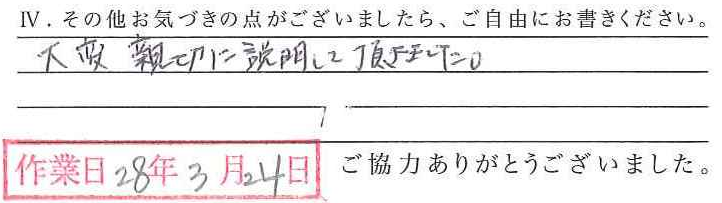 Ⅳ．その他お気づきの点がございましたら、ご自由にお書きください。
大変親切に説明して頂きました。
作業日28年3月24日
ご協力ありがとうございました。